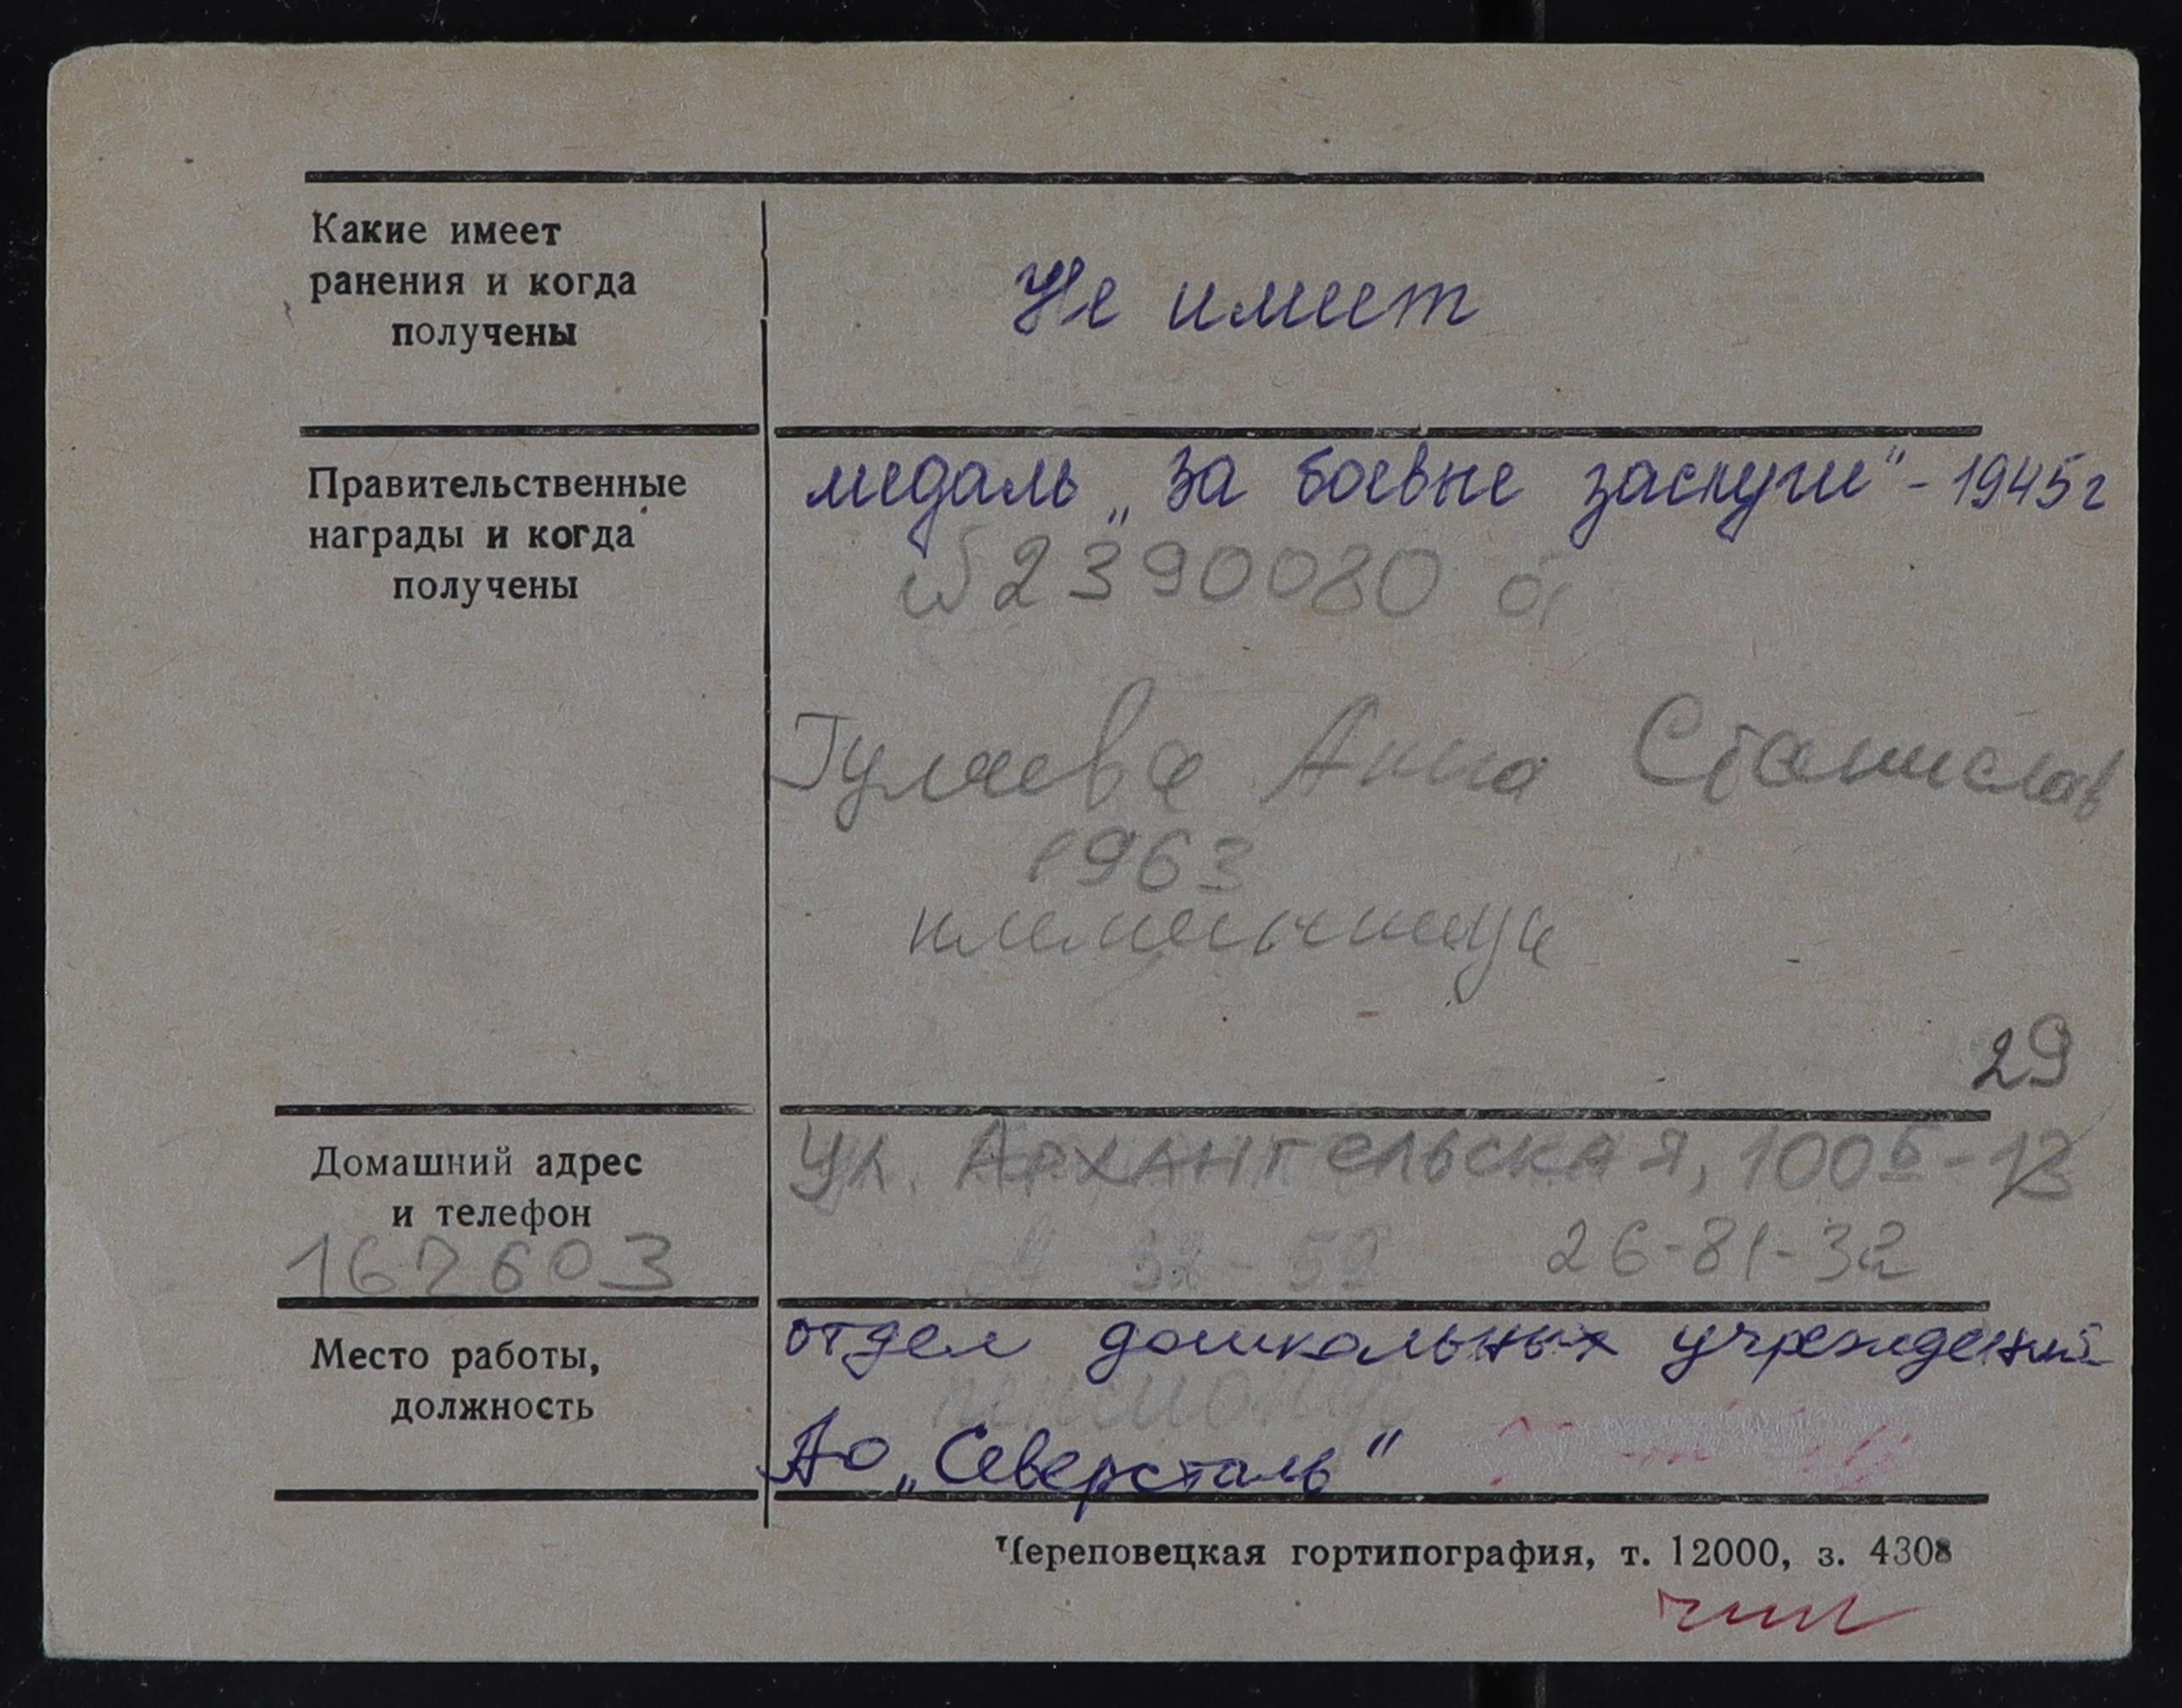 Какие имеет
ранения и когда
получены
Не имеет
Правительственные
награды и когда
получены
медаль „За боевые заслуги" - 1945г
№2390080
Гуляева Анна Станислав
1963
племянница
29
Домашний адрес
и телефон
162603
ул. Архангельская, 100Б-13
26-81-32
Место работы,
должность
отдел дошкольных учреждений
пенсионер
АО „Северсталь"
Череповецкая гортипография, т. 12000, з. 4308